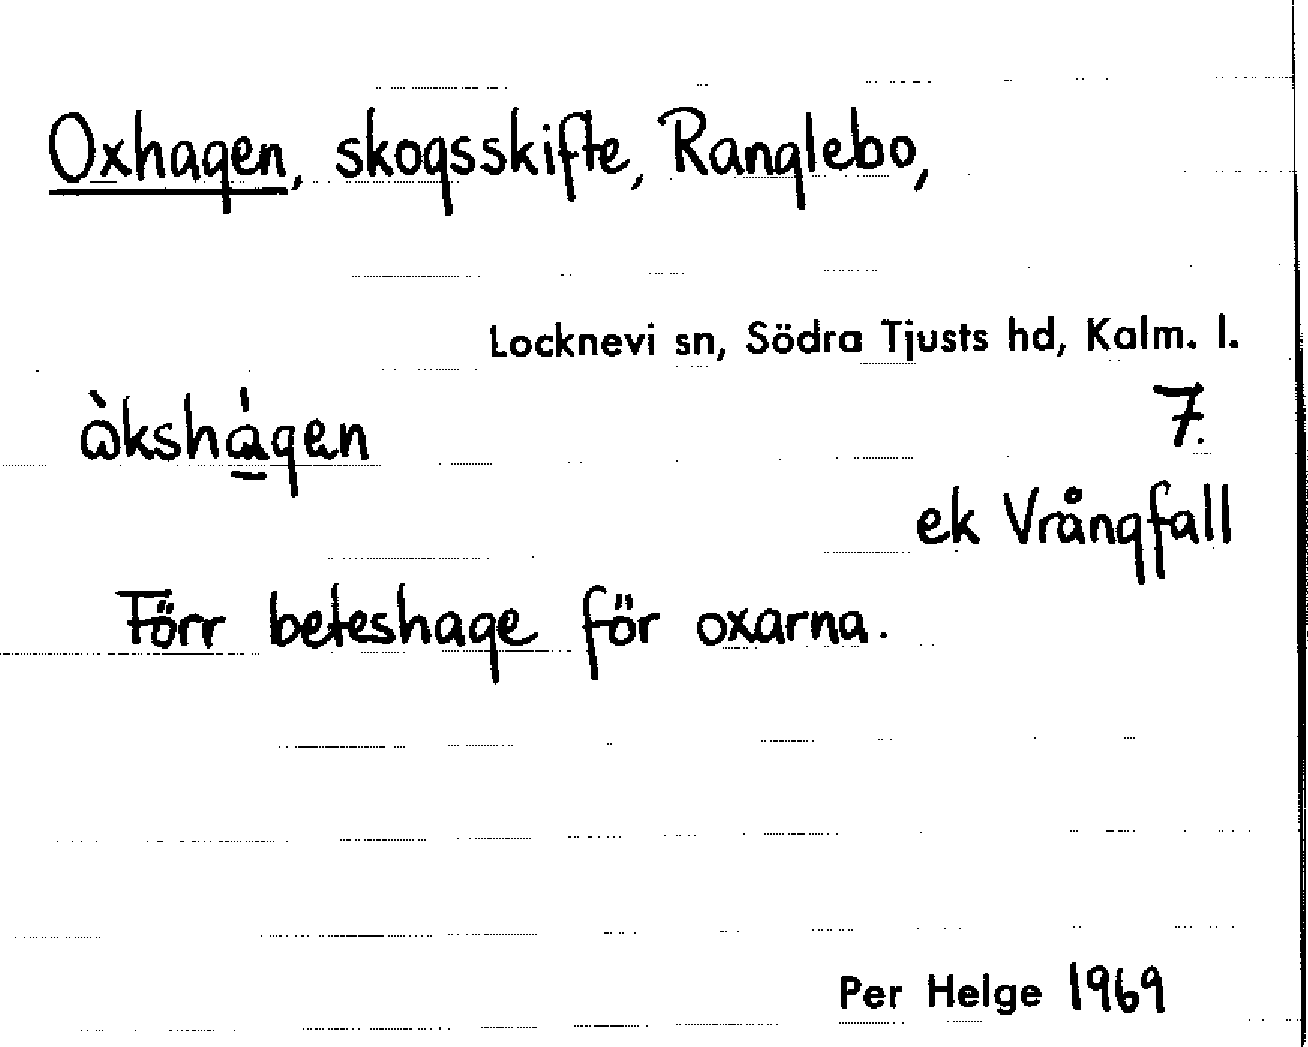 Oxhagen, skogsskifte, Ranglebo,
Locknevi sn, Södra Tjusts hd, Kalm. l.
7.
ek Vrångfall
Förr beteshage för oxarna.
Per Helge 1969